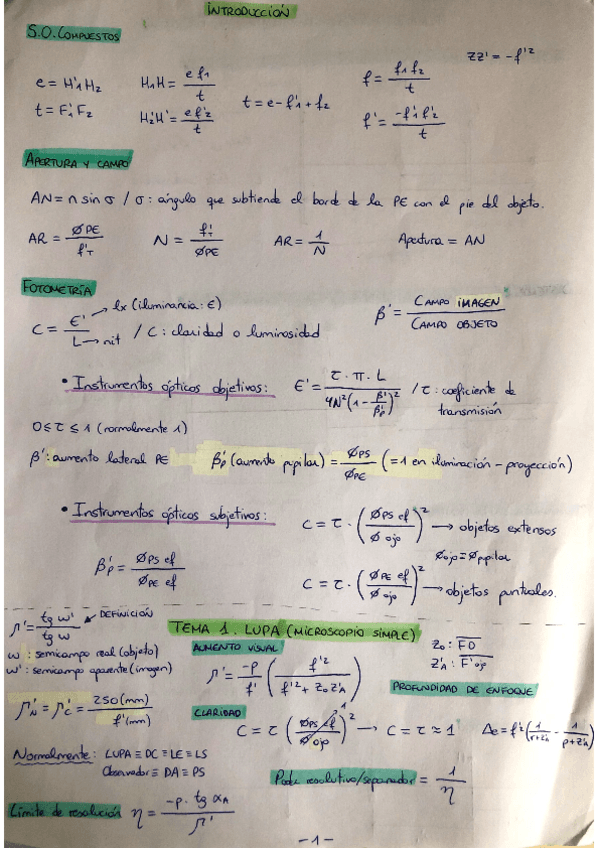 INTRODUCCIÓN
S.O. COMPUESTOS
zz' = -f'²
e = H'₁H₂
H₁H = e f₁ / t
t = e - f'₁ + f₂
f = f₁ f₂ / t
t = F'₁F₂
H'₂H' = e f'₂ / t
f' = -f'₁ f'₂ / t
APERTURA Y CAMPO
AN = n sin σ / σ: ángulo que subtiende el borde de la PE con el pie del objeto.
AR = ØPE / f'T
N = f'T / ØPE
AR = 1 / N
Apertura = AN
FOTOMETRÍA
C = E' / L → lx (iluminancia: E) → nit / C: claridad o luminosidad
β' = CAMPO IMAGEN / CAMPO OBJETO
• Instrumentos ópticos objetivos: E' = τ · π · L / 4N²(1 - β'/β'p)² / τ: coeficiente de
transmisión
0 ≤ τ ≤ 1 (normalmente 1)
β': aumento lateral PE β'p (aumento pupilar) = ØPS / ØPE (=1 en iluminación - proyección)
• Instrumentos ópticos subjetivos: C = τ · (ØPS ef / Ø ojo)² → objetos extensos
Øojo = Øpupilar
β'p = ØPS ef / ØPE ef
C = τ · (ØPE ef / Ø ojo)² → objetos puntuales.
Γ' = tg w' / tg w ← DEFINICIÓN
w: semicampo real (objeto)
w': semicampo aparente (imagen)
TEMA 1. LUPA (MICROSCOPIO SIMPLE)
AUMENTO VISUAL
Γ' = -p / f' (f'² / f'² + z₀z'A)
z₀: FO
z'A: F'ojo
PROFUNDIDAD DE ENFOQUE
Γ'N = Γ'C = 250 (mm) / f' (mm)
CLARIDAD
C = τ (ØPS ef / Ø ojo)² 1 → C = τ ≈ 1
Δe = f'² (1 / r+z'A - 1 / p+z'A)
Normalmente: LUPA ≡ DC ≡ LE ≡ LS
Observador ≡ DA ≡ PS
Poder resolutivo/separador = 1 / η
Límite de resolución η = -p · tg αA / Γ'
-1-